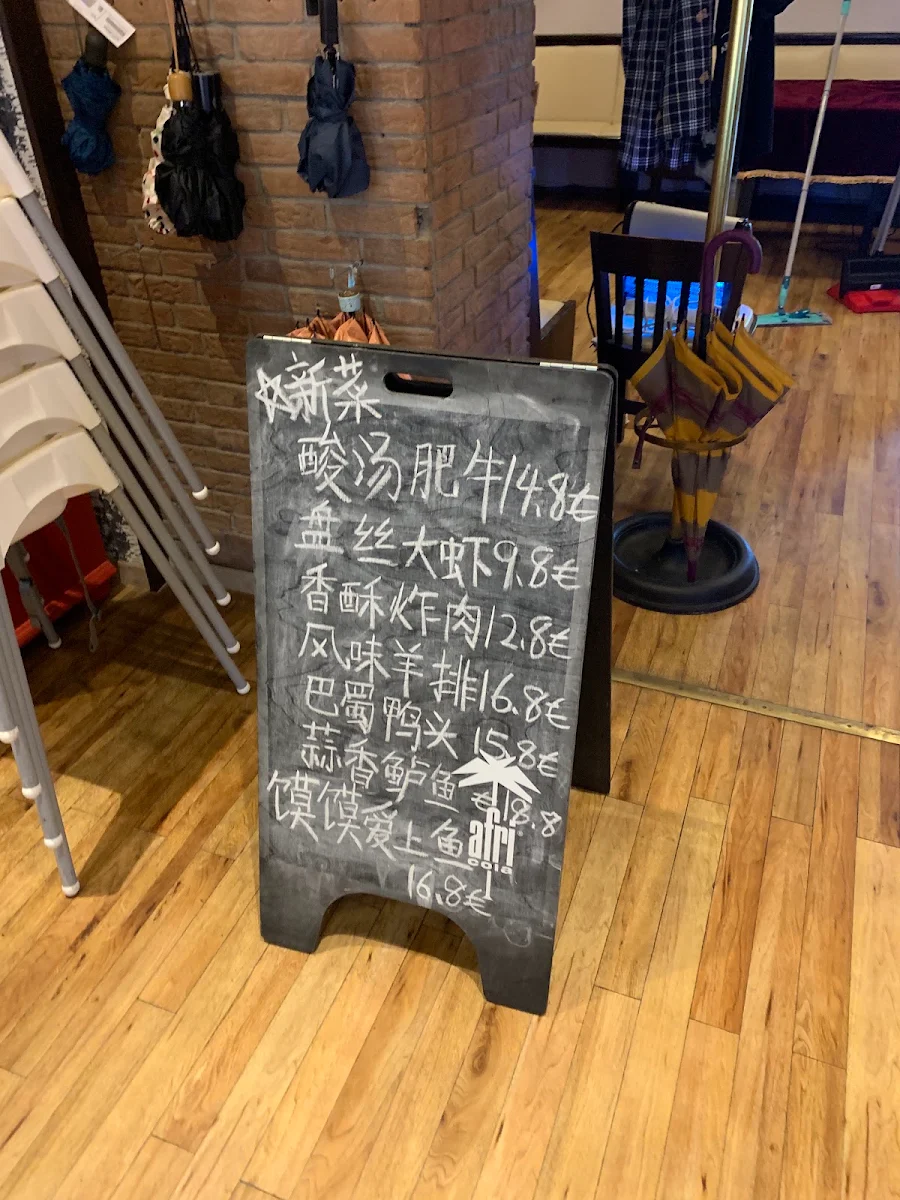 ☆新菜
酸汤肥牛14.8€
盘丝大虾9.8€
香酥炸肉12.8€
风味羊排16.8€
巴蜀鸭头 15.8€
蒜香鲈鱼 €18.8
馍馍爱上鱼
16.8€
afri
cola